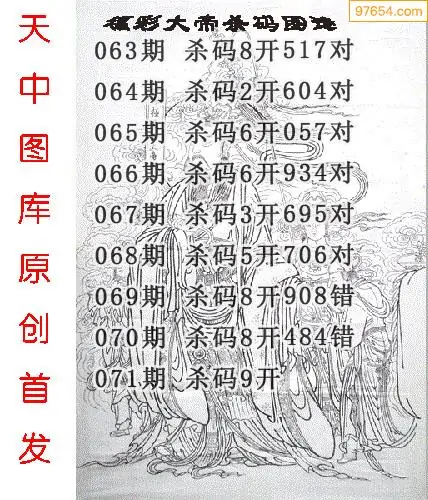 97654.com
福彩大帝杀码图谜
063期 杀码8开517对
064期 杀码2开604对
065期 杀码6开057对
066期 杀码6开934对
067期 杀码3开695对
068期 杀码5开706对
069期 杀码8开908错
070期 杀码8开484错
071期 杀码9开
天中图库原创首发